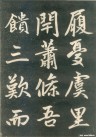 履憂虞里
閈蕭條吾
饋三歎而